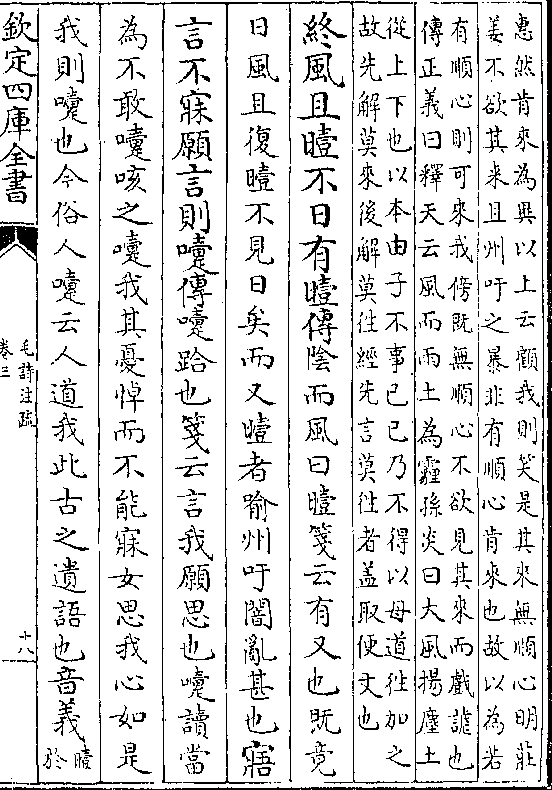 惠然肯來為異以上云顧我則笑是其來無順心明莊
姜不欲其來且州吁之暴非有順心肯來也故以為若
有順心則可來我傍既無順心不欲見其來而戲謔也
傳正義曰釋天云風而雨土為霾孫炎曰大風揚塵土
從上下也以本由子不事已已乃不得以母道往加之
故先解莫來後解莫往經先言莫往者盖取便文也
終風且曀不日有曀傳陰而風曰曀箋云有又也既竟
日風且復曀不見日矣而又曀者喻州吁闇亂甚也寤
言不寐願言則嚏傳嚏跲也箋云言我願思也嚏讀當
為不敢嚏咳之嚏我其憂悼而不能寐女思我心如是
我則嚏也今俗人嚏云人道我此古之遺語也音義
曀
於
欽定四庫全書
毛詩注疏
卷三
十八